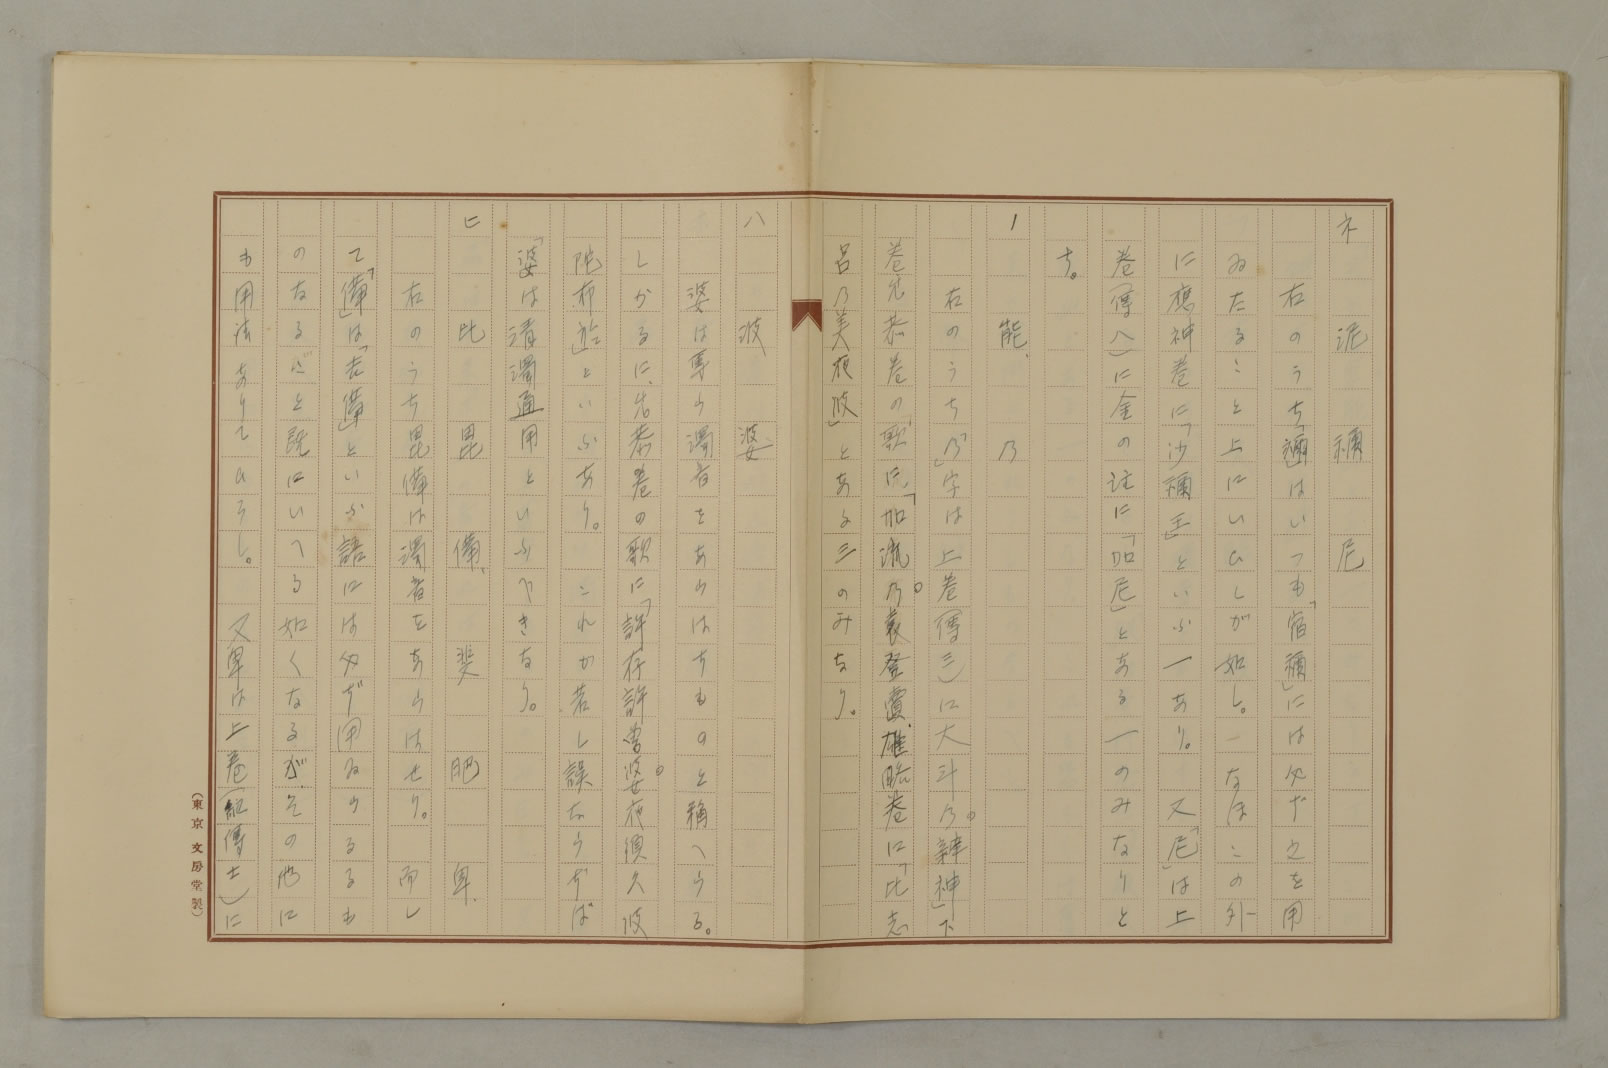 ネ　泥　禰　尼
右のうち「禰」はいつも「宿禰」には必ず之を用
ゐたること上にいひしが如し。なほこの外
に應神巻に「沙禰王」といふ一あり。又「尼」は上
巻(傳八)に金の注に「加尼」とある一のみなりと
す。
ノ　能、乃
右のうち「乃」字は上巻(傳三)に大斗乃辨神」下
巻允恭巻の「歌に「加流乃袁登賣、雄略巻に「比志
呂乃美夜波」とある三のみなり。
ハ　波　婆
婆は専ら濁音をあらはすものと稱へらる。
しかるに、允恭巻の歌に「許存許曽婆夜須久波
陀布礼」といふあり。これか若し誤ならずば
「婆」は清濁通用といふべきなり。
ヒ　比　毘　備、斐　肥　卑、
右のうち毘備は濁音をあらはせり。而し
て「備」は「吉備」といふ語には必ず用ゐらるるも
のなるざと既にいへる如くなるが、その他に
も用法ありてひろし。又卑は上巻(紀傳士)に
(東京文房堂製)